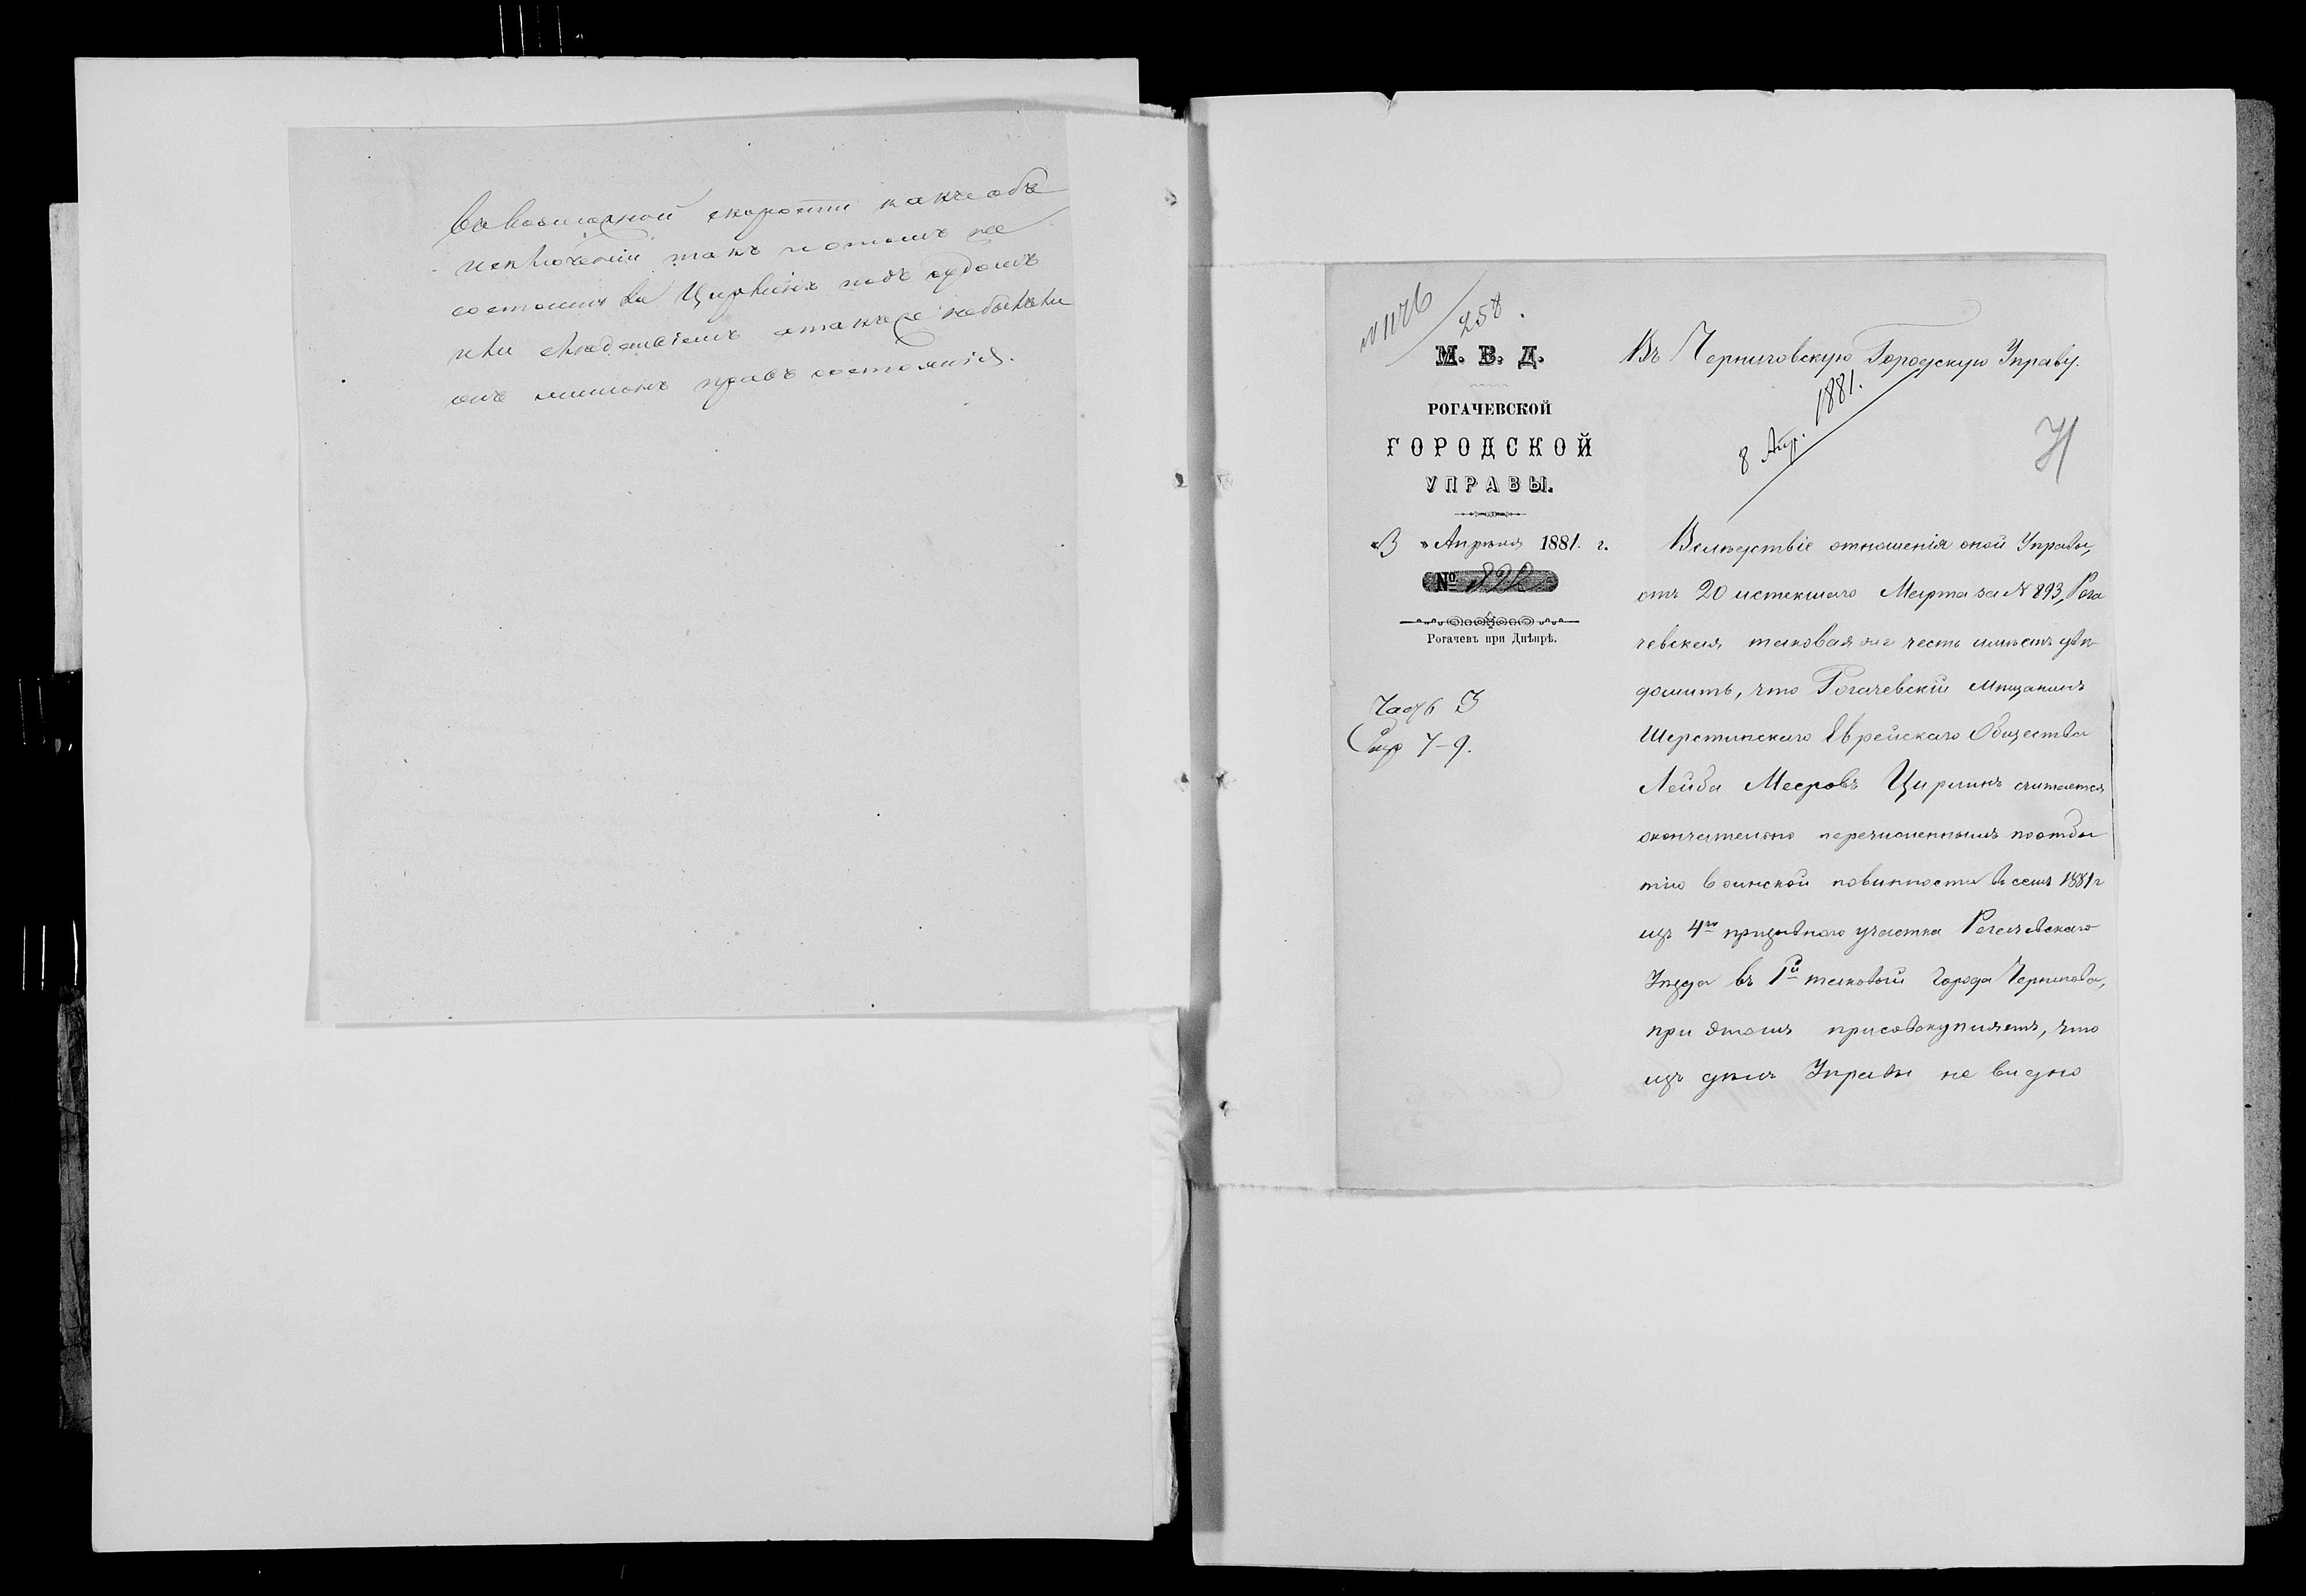 въ возможной скорости какъ объ
исключеніи такъ и о томъ не
состоитъ ли Цирлинъ подъ судомъ
или слѣдствіемъ а также не былъ ли
онъ лишонъ правъ состоянія.
258.
М. В. Д.
РОГАЧЕВСКОЙ
ГОРОДСКОЙ
УПРАВЫ.
«3» Апрѣля 1881. г.
№
Рогачевъ при Днѣпрѣ.
Часть 3
Стр 7-9.
Въ Черниговскую Городскую Управу.
8 Апр. 1881.
Вслѣдствіе отношенія оной Управы,
отъ 20 истекшаго Марта за № 893, Рога
чевская таковая же честь имѣетъ увѣ
домить, что Рогачевскій мѣщанинъ
Шерстинскаго Еврейскаго Общества
Лейба Мееровъ Цирлинъ считается
окончательно перечисленнымъ по отбы
тію воинской повинности въ семъ 1881 г
изъ 4го призывнаго участка Рогачевскаго
Уѣзда въ 1й таковый города Чернигова,
при этомъ присовокупляетъ, что
изъ дѣлъ Управы не видно